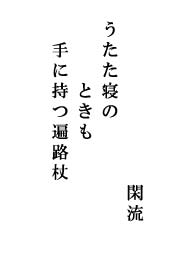 うたた寝の
ときも
手に持つ遍路杖
閑流